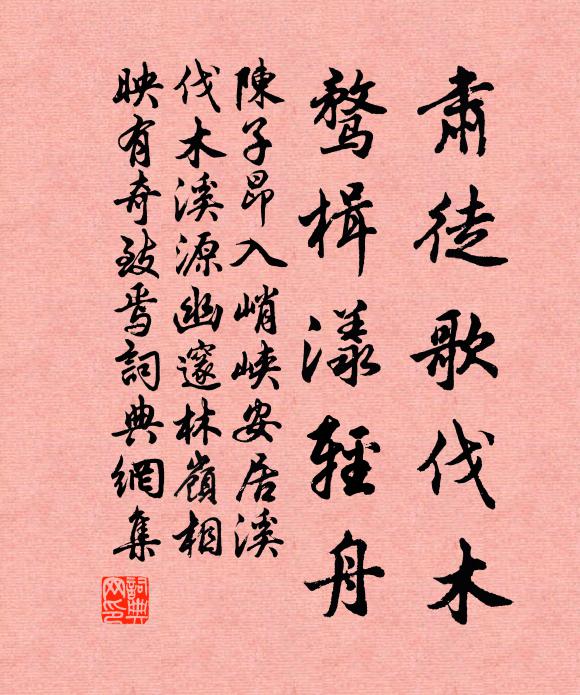 肅徒歌伐木
鶩楫漾輕舟
陳子昂入峭峽安居溪
伐木溪源幽邃林嶺相
映有奇致焉詞典網集
詞典
网印